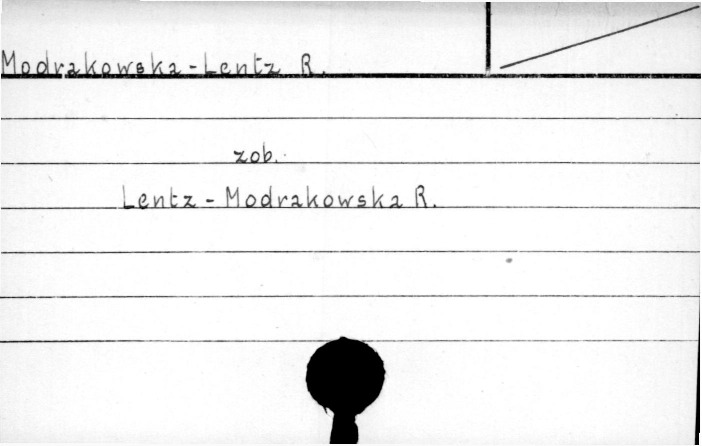 Modrakowska-Lentz R.
zob.
Lentz - Modrakowska R.